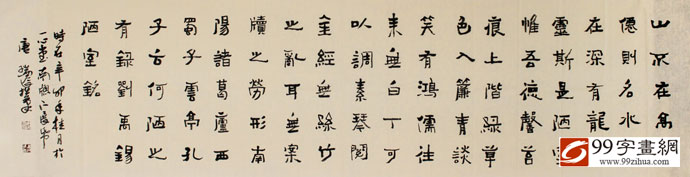 山不在高
僊則名水
在深有龍
靈斯是陋室
惟吾德馨苔
痕上階綠草
色入簾青談
笑有鴻儒往
來無白丁可
以調素琴閱
金經無絲竹
之亂耳無案
牘之勞形南
陽諸葛廬西
蜀子雲亭孔
子云何陋之
有錄劉禹錫
陋室銘
時在辛卯年桂月於
99字畫網
www.99zihua.com